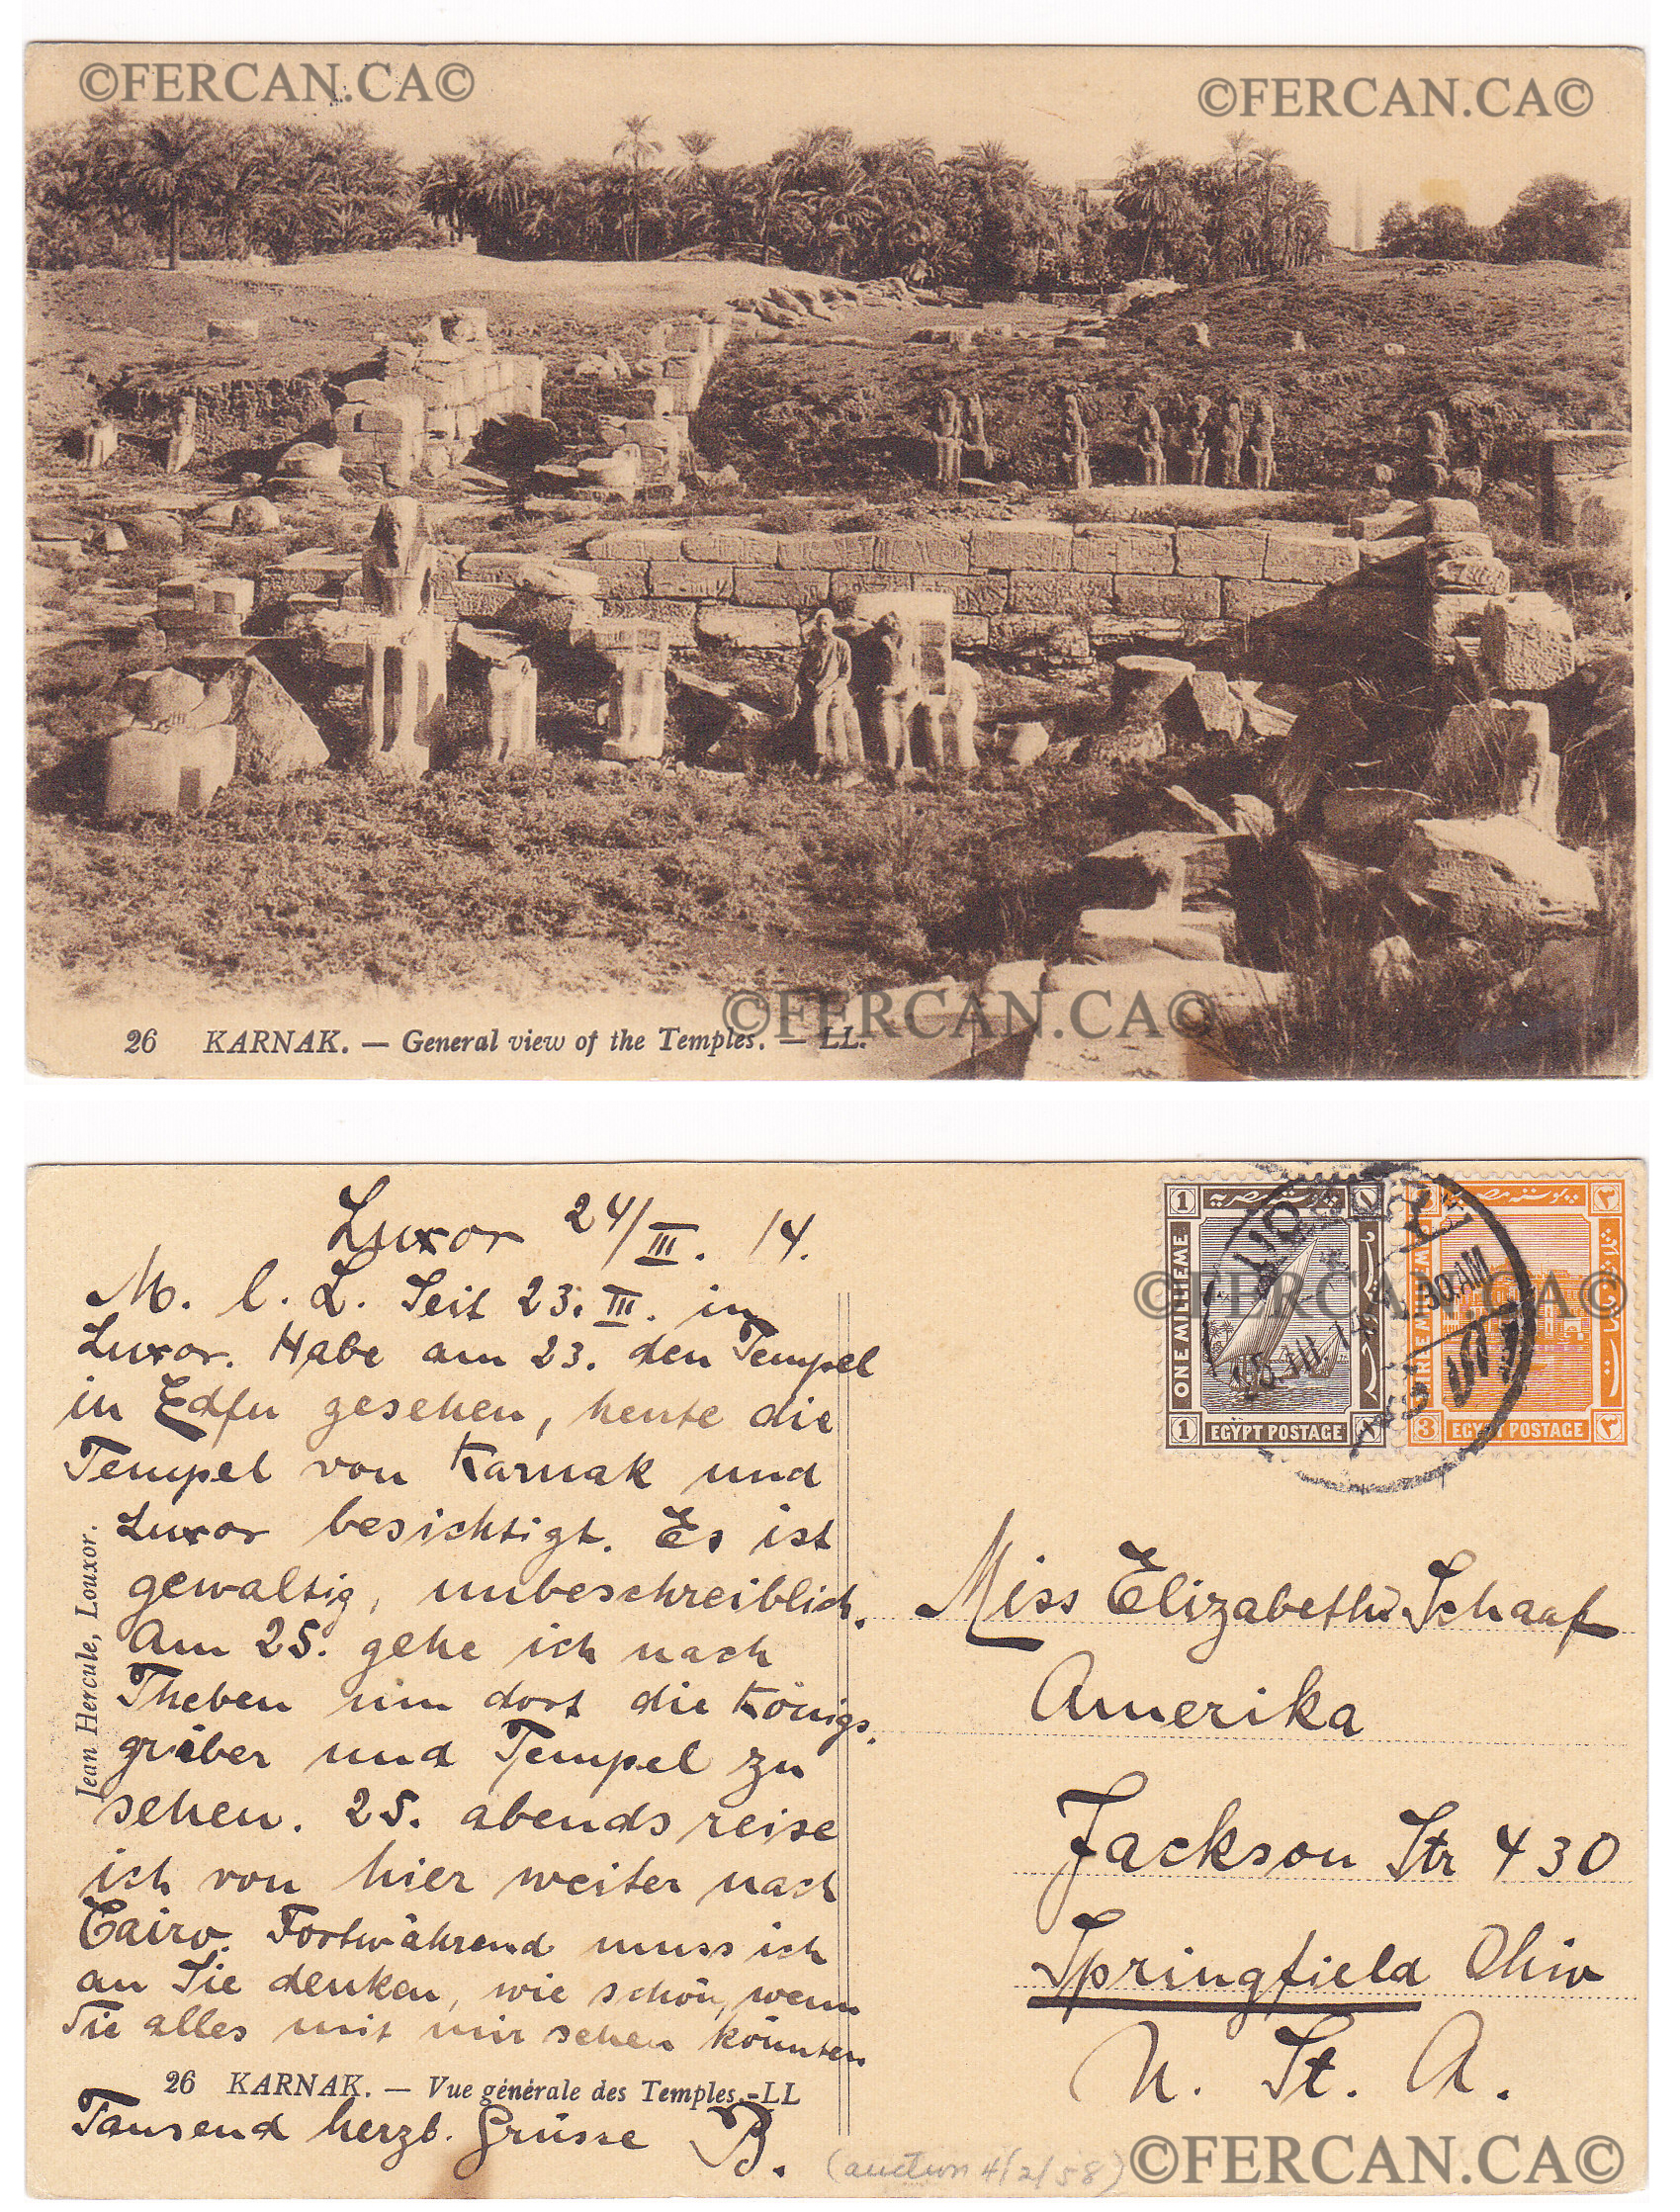 ©FERCAN.CA©
©FERCAN.CA©
©FERCAN.CA©
26 KARNAK. — General view of the Temples. — LL.
Luxor 24/III. 14.
M. l. L. Seit 23. III. in
Luxor. Habe am 23. den Tempel
in Edfu gesehen, heute die
Tempel von Karnak und
Luxor besichtigt. Es ist
gewaltig, unbeschreiblich.
Am 25. gehe ich nach
Theben um dort die Königs-
gräber und Tempel zu
sehen. 25. abends reise
ich von hier weiter nach
Cairo. Fortwährend muss ich
an Sie denken, wie schön, wenn
Sie alles mit mir sehen könnten
26 KARNAK. — Vue générale des Temples.-LL
Tausend herzl. Grüsse B.
Jean Hercule, Louxor.
1
ONE MILLIEME
بوستة مصرية
1 EGYPT POSTAGE
٣
بوستة مصرية
3 EGYPT POSTAGE ٣
LUQSOR
30.AM
©FERCAN.CA©
Miss Elizabeth Schaaf
Amerika
Jackson Str 430
Springfield Ohio
U. St. A.
(auction 4/2/58)
©FERCAN.CA©